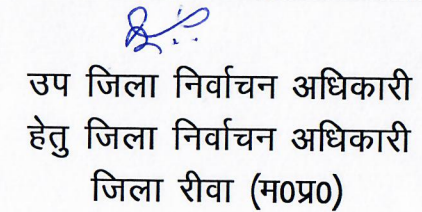 उप जिला निर्वाचन अधिकारी
हेतु जिला निर्वाचन अधिकारी
जिला रीवा (म0प्र0)